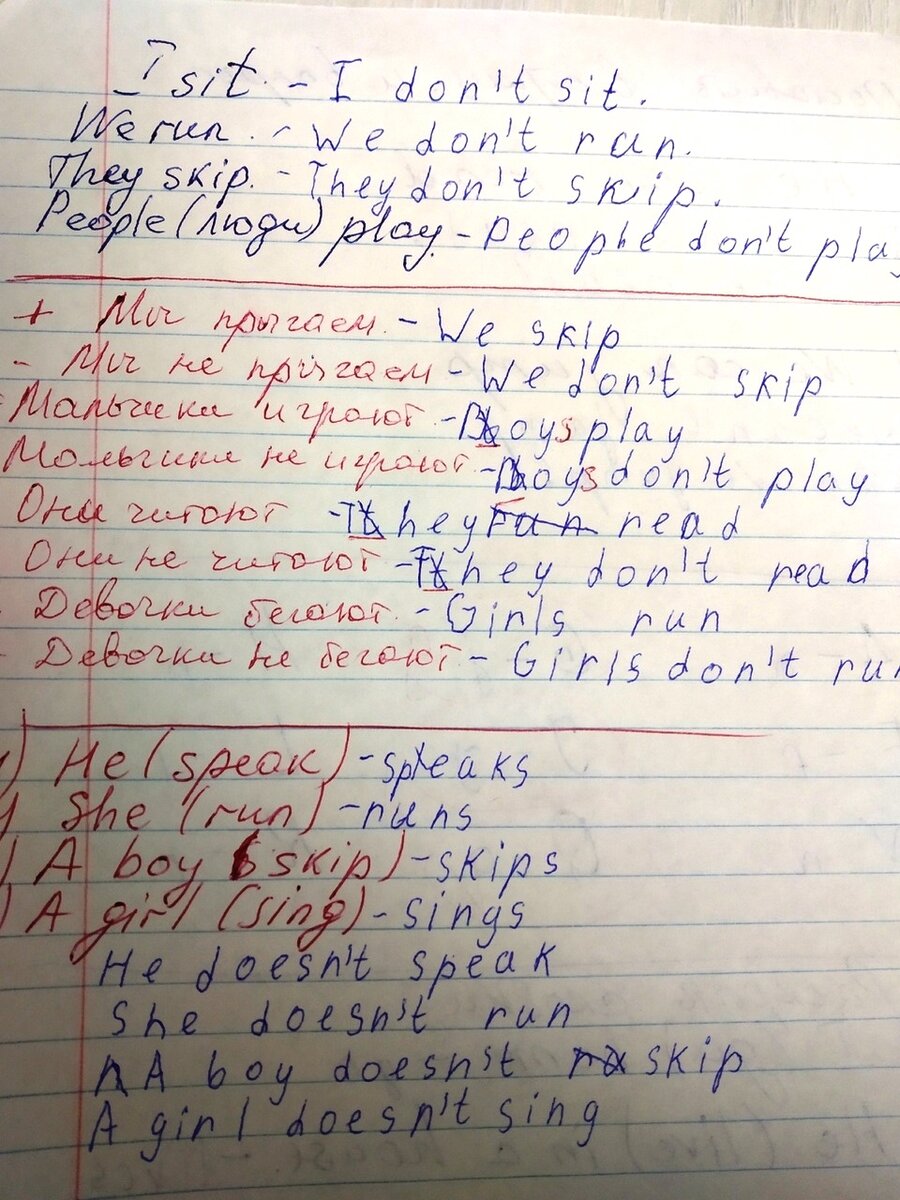 I sit. - I don't sit.
We run. - We don't run.
They skip. - They don't skip.
People (люди) play. - People don't play
+ Мы прыгаем. - We skip
- Мы не прыгаем - We don't skip
Мальчики играют - Boys play
Мальчики не играют - Boys don't play
Они читают - They read
Они не читают - They don't read
Девочки бегают. - Girls run
- Девочки не бегают - Girls don't run
) He (speak) - speaks
) She (run) - runs
) A boy (skip) - skips
) A girl (sing) - sings
He doesn't speak
She doesn't run
A boy doesn't skip
A girl doesn't sing